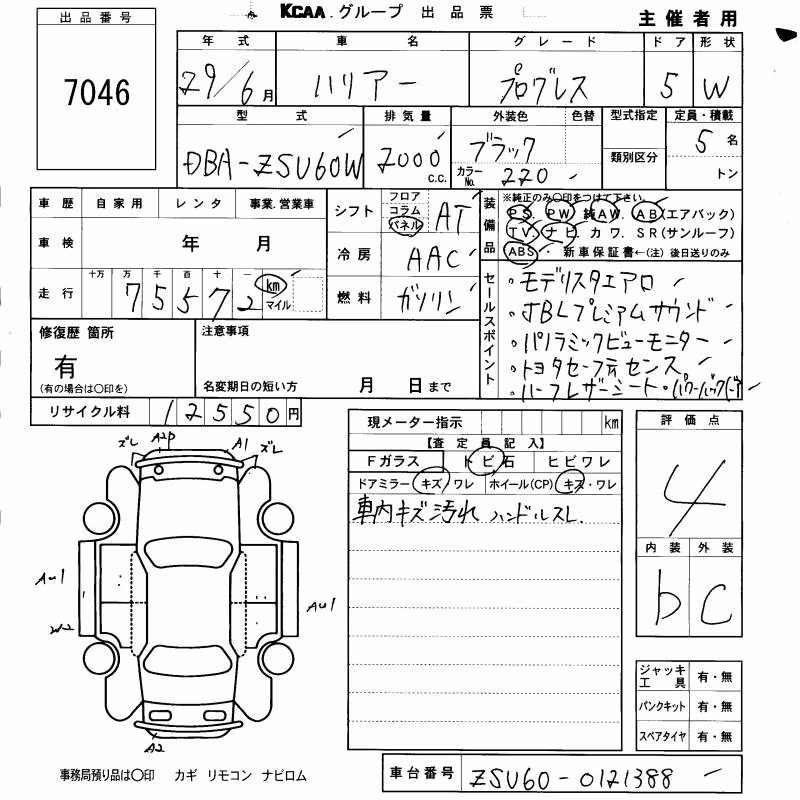 KCAA.グループ 出品票
主催者用
出品番号
7046
年式 車名 グレード ドア 形状
29/6月 ハリアー プログレス 5 W
型式 排気量 外装色 色替 型式指定 定員・積載
DBA-ZSU60W 2000 c.c. ブラック 5名
カラーNo. 220 類別区分 トン
車歴 自家用 レンタ 事業.営業車
車検 年 月
走行 十万 万 千 百 十 一
75572 km マイル
シフト フロア コラム パネル AT
冷房 AAC
燃料 ガソリン
装備品 ※純正のみ○印をつけて下さい。
PS. PW. 純AW. AB(エアバック)
TV. ナビ. カワ. SR(サンルーフ)
ABS・ 新車保証書←(注) 後日送りのみ
セールスポイント
・モデリスタエアロ
・JBLプレミアムサウンド
・パノラミックビューモニター
・トヨタセーフティセンス
・ハーフレザーシート・パワーバックドア
修復歴 箇所
有
(有の場合は○印を)
注意事項
名変期日の短い方 月 日まで
リサイクル料 12550円
現メーター指示 km
【査定員記入】
Fガラス トビ石 ヒビワレ
ドアミラー キズ/ワレ ホイール(CP) キズ・ワレ
車内キズ汚れ ハンドルスレ.
評価点
4
内装 外装
b C
ズレ A2P A1 ズレ
AU1
AU1
W2
A2
ジャッキ工具 有・無
パンクキット 有・無
スペアタイヤ 有・無
事務局預り品は○印 カギ リモコン ナビロム
車台番号 ZSU60-0121388